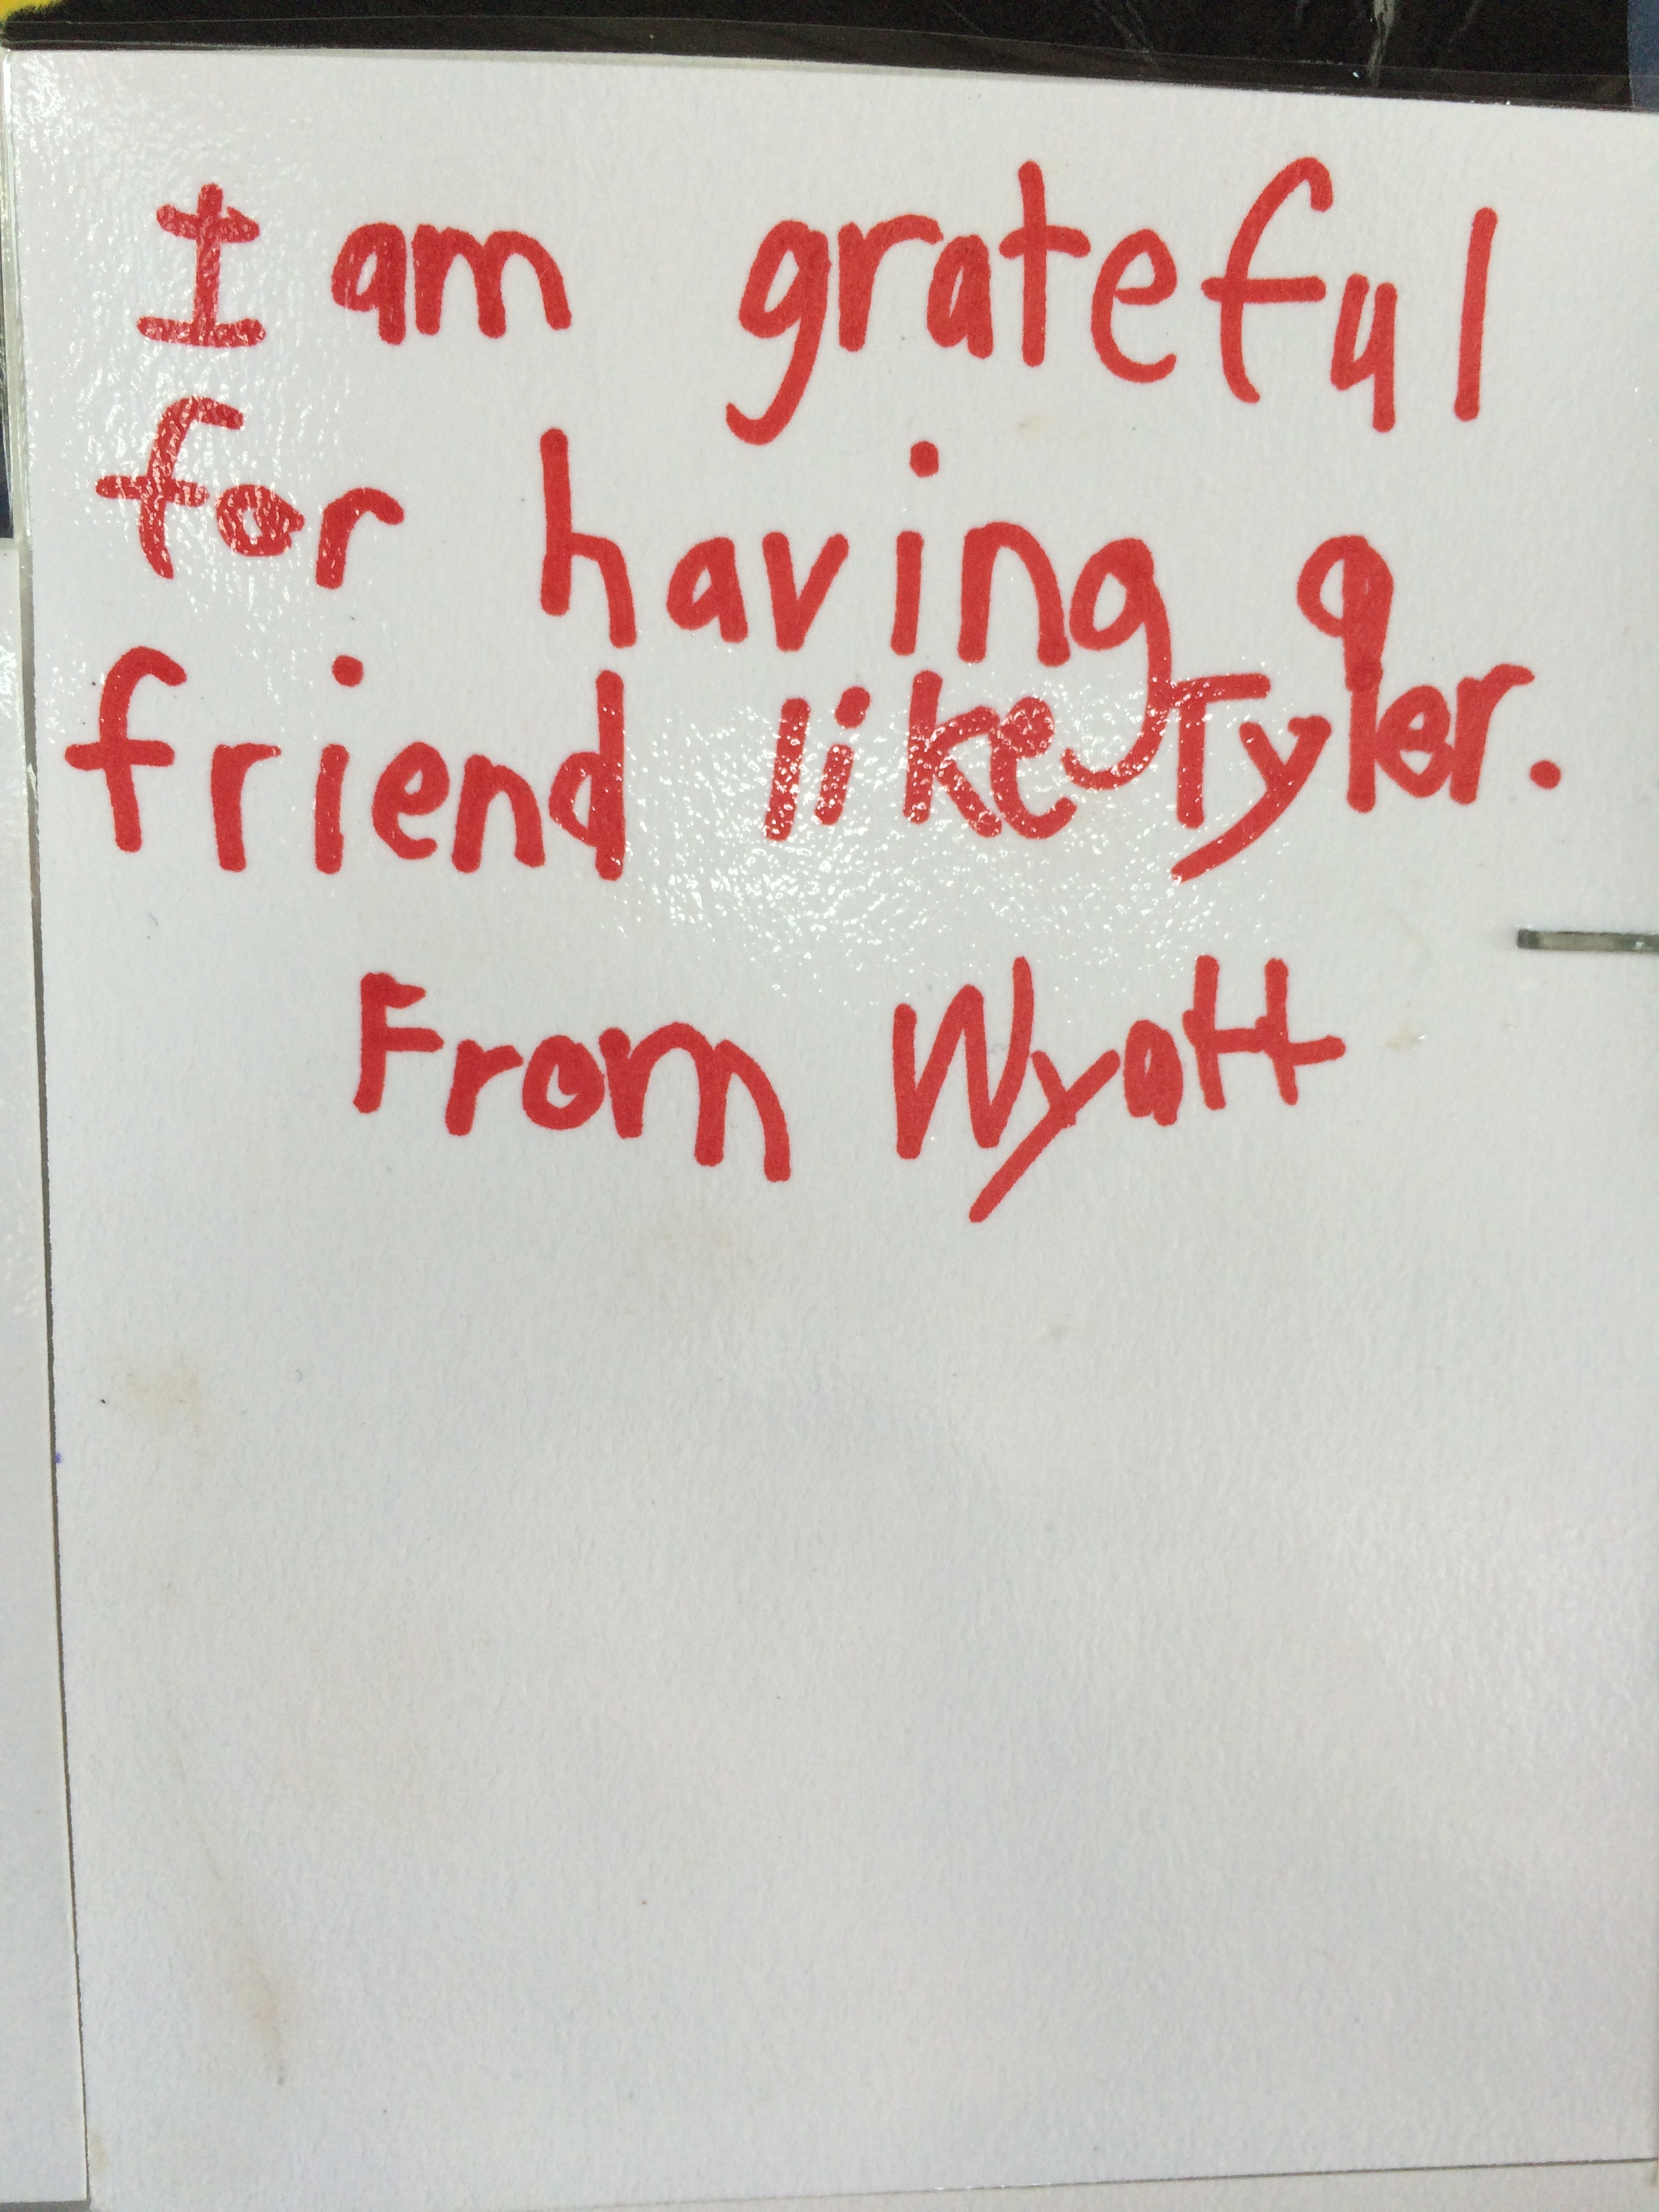 I am grateful
for having a
friend like Tyler.
From Wyatt